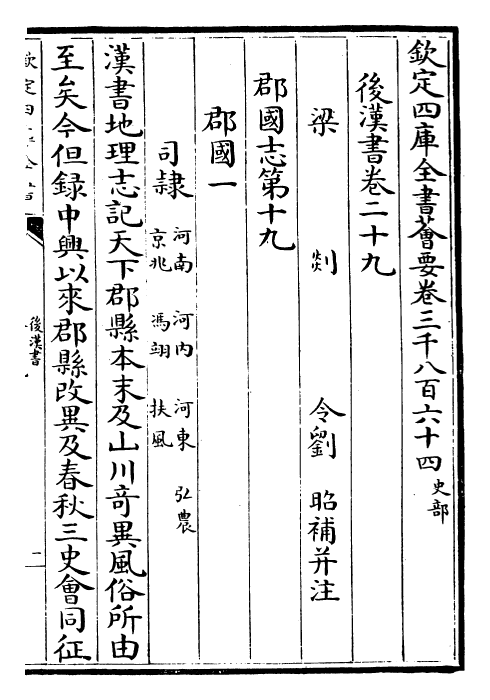 欽定四庫全書薈要卷三千八百六十四 史部
後漢書卷二十九
梁 剡 令劉 昭補并注
郡國志第十九
郡國一
司隸 河南 河內 河東 弘農
京兆 馮翊 扶風
漢書地理志記天下郡縣本末及山川竒異風俗所由
至矣今但録中興以來郡縣改異及春秋三史會同征
欽定四庫全書
後漢書
一